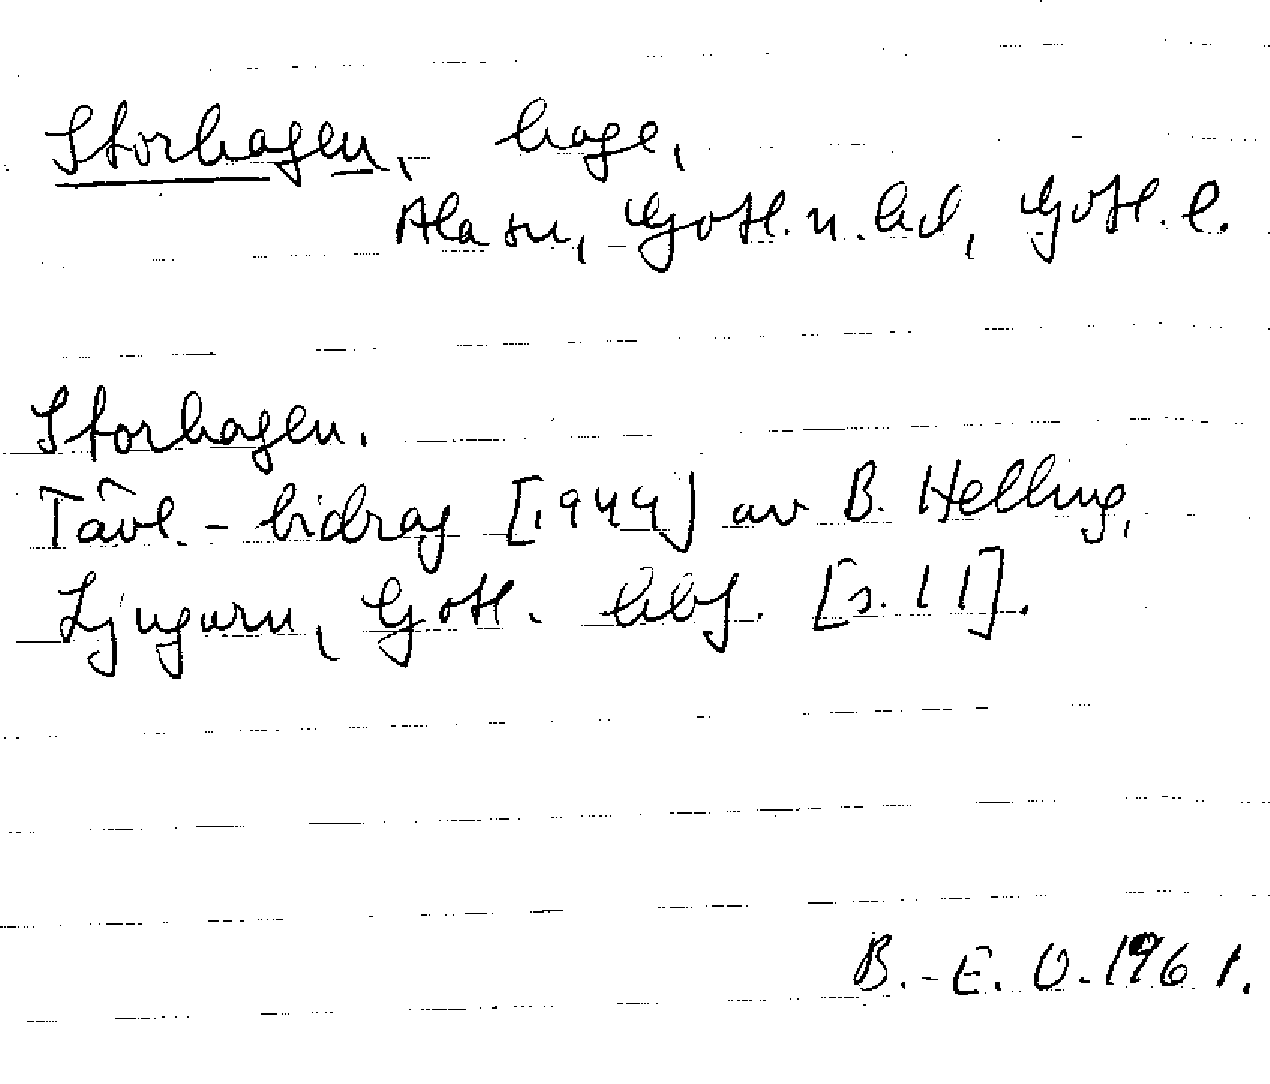 Storhagen, hage,
Ala sn, Gotl. n. hd, Gotl. l.
Storhagen.
Tävl.-bidrag [1944] av B. Helling,
Ljugarn, Gotl. [s. 11].
B.-E. O. 1961.